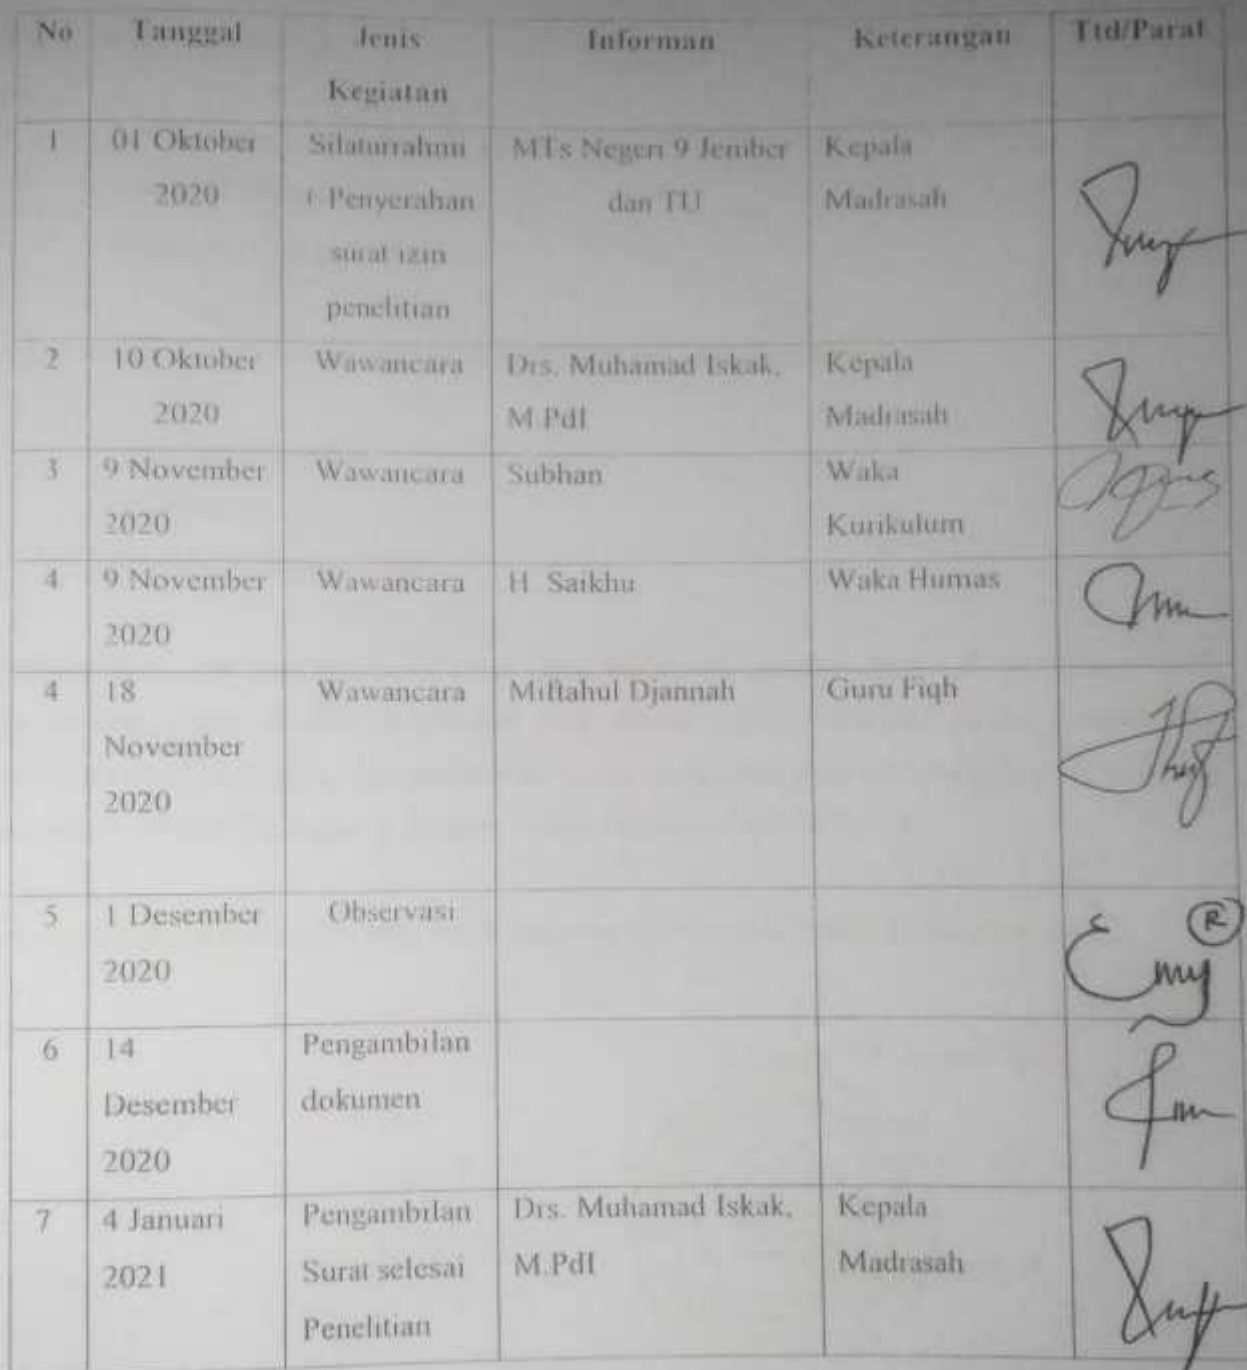 No Tanggal Jenis Kegiatan Informan Keterangan Ttd/Paraf
1 01 Oktober 2020 Silaturrahmi + Penyerahan surat izin penelitian MTs Negeri 9 Jember dan TU Kepala Madrasah
2 10 Oktober 2020 Wawancara Drs. Muhamad Iskak, M.PdI Kepala Madrasah
3 9 November 2020 Wawancara Subhan Waka Kurikulum
4 9 November 2020 Wawancara H. Saikhu Waka Humas
4 18 November 2020 Wawancara Miftahul Djannah Guru Fiqh
5 1 Desember 2020 Observasi Emy R
6 14 Desember 2020 Pengambilan dokumen
7 4 Januari 2021 Pengambilan Surat selesai Penelitian Drs. Muhamad Iskak, M.PdI Kepala Madrasah